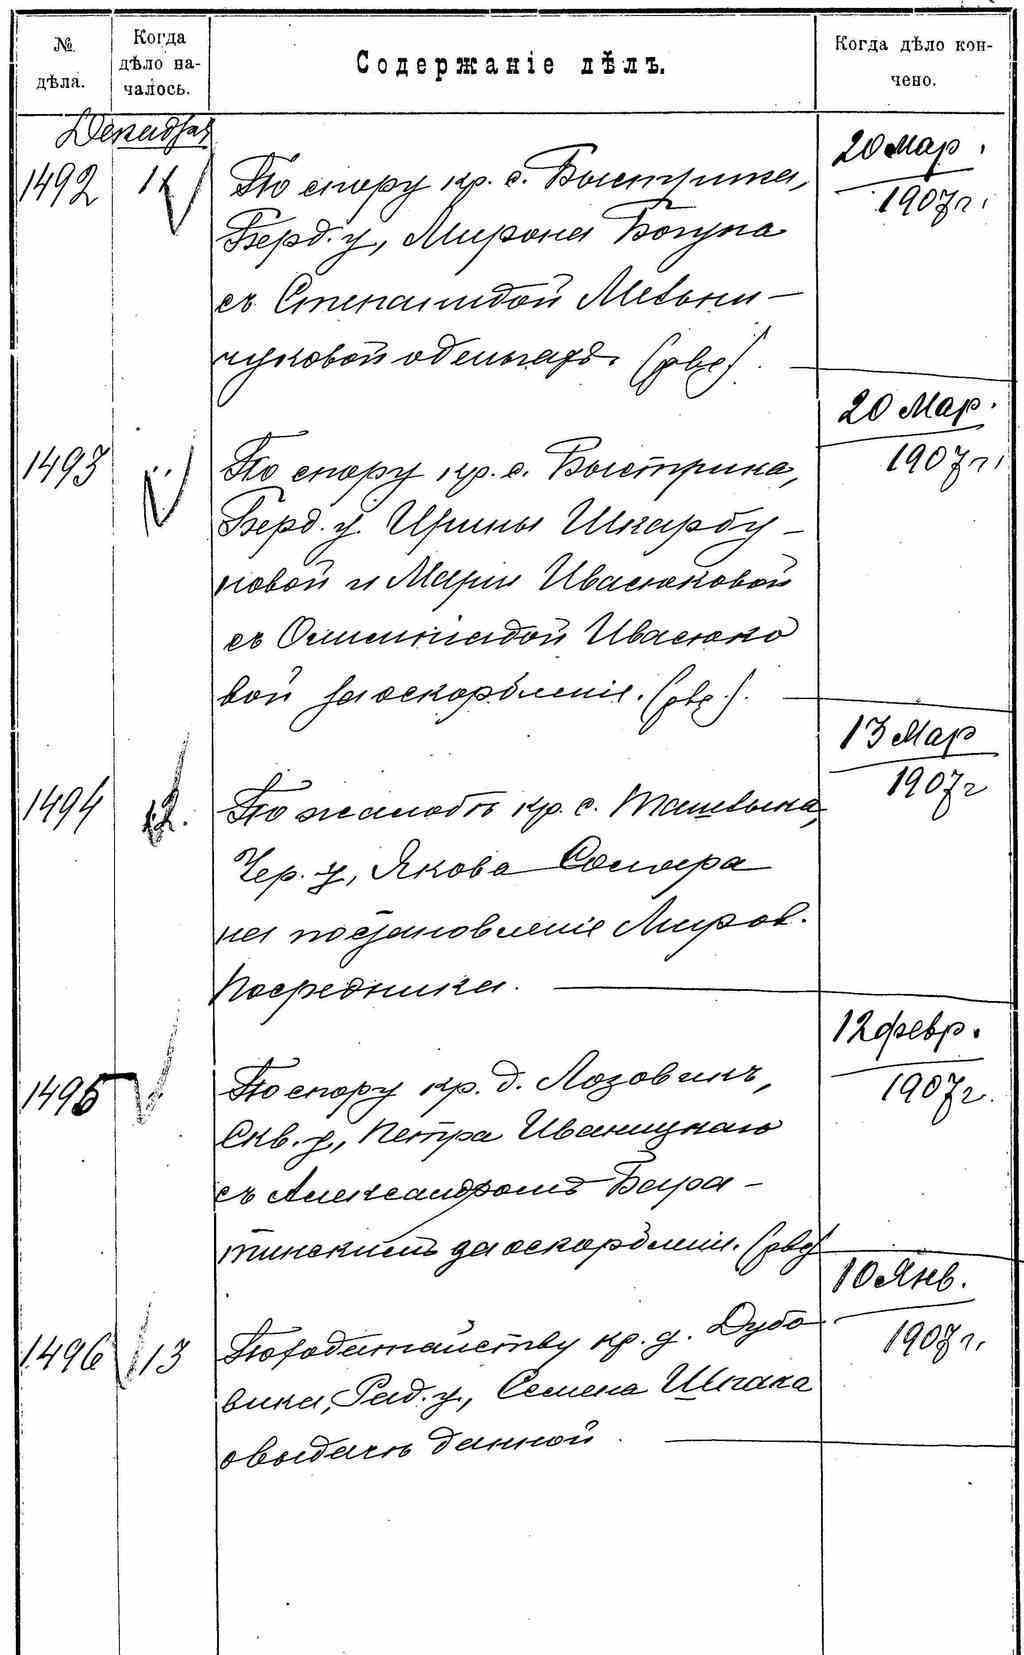 № дѣла.
Когда дѣло на-
чалось.
Содержаніе дѣлъ.
Когда дѣло кон-
чено.
Декабря
1492
11
По спору кр. с. Быстрика,
Берд. у, Мирона Богуна
съ Степанидой Мельни-
чуковой о деньгахъ.
20 Мар.
1907 г.
1493
По спору кр. с. Быстрика,
Берд. у. Ирины Шкарбу-
новой и Маріи Ивасюковой
съ Олимпіадой Ивасюко
вой за оскорбленіе.
20 Мар.
1907 г.
1494
12.
По жалобѣ кр. с. Ташлыка,
Чер. у, Якова
на постановленіе Миров.
Посредника.
13 Мар
1907 г
1495
По спору кр. д. Лозовикъ,
Скв. у, Петра Иваницкаго
съ Александромъ Бара-
тинскимъ за оскорбленіе.
12 февр.
1907 г.
1496
13
По ходатайству кр. д. Дубо
вика, Рад. у, Семена Шпака
о выдачѣ данной.
10 Янв.
1907 г.